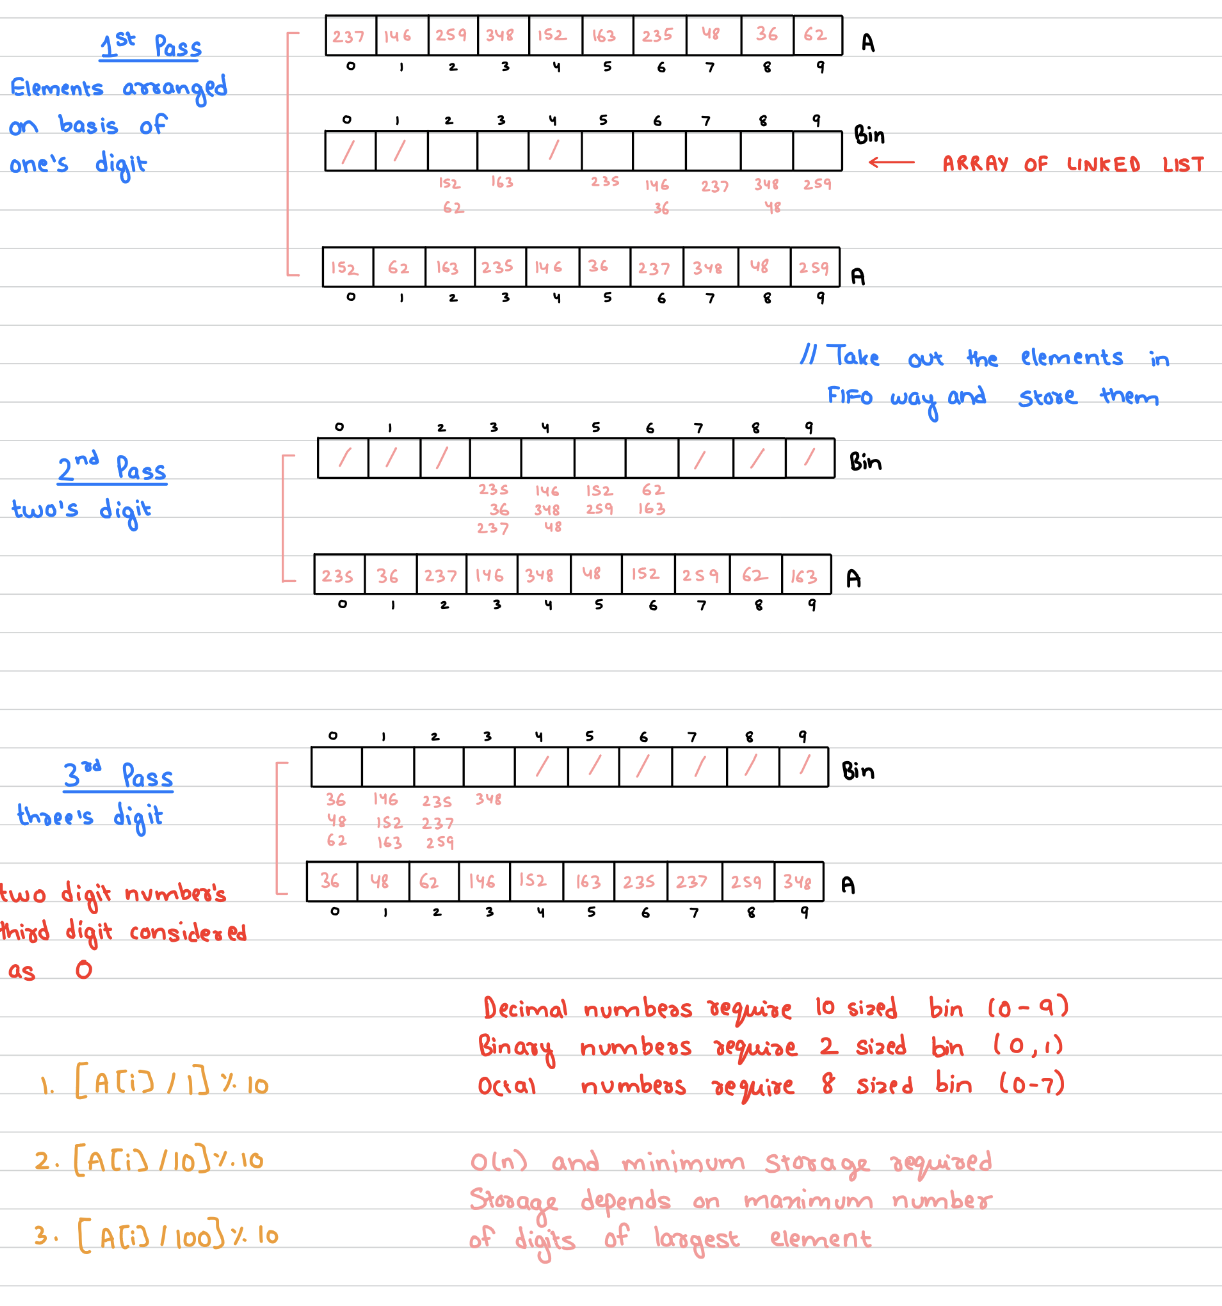 1st Pass
Elements arranged
on basis of
one's digit
237 146 259 348 152 163 235 48 36 62 A
0 1 2 3 4 5 6 7 8 9
0 1 2 3 4 5 6 7 8 9 Bin
/ / /
← ARRAY OF LINKED LIST
152 163 235 146 237 348 259
62 36 48
152 62 163 235 146 36 237 348 48 259 A
0 1 2 3 4 5 6 7 8 9
// Take out the elements in
FIFO way and store them
2nd Pass
two's digit
0 1 2 3 4 5 6 7 8 9
/ / / / / / Bin
235 146 152 62
36 348 259 163
237 48
235 36 237 146 348 48 152 259 62 163 A
0 1 2 3 4 5 6 7 8 9
3rd Pass
three's digit
0 1 2 3 4 5 6 7 8 9
/ / / / / / Bin
36 146 235 348
48 152 237
62 163 259
36 48 62 146 152 163 235 237 259 348 A
0 1 2 3 4 5 6 7 8 9
two digit number's
third digit considered
as 0
Decimal numbers require 10 sized bin (0-9)
Binary numbers require 2 sized bin (0,1)
Octal numbers require 8 sized bin (0-7)
1. [A[i] / 1] % 10
2. [A[i] / 10] % 10
3. [A[i] / 100] % 10
O(n) and minimum storage required
Storage depends on maximum number
of digits of largest element